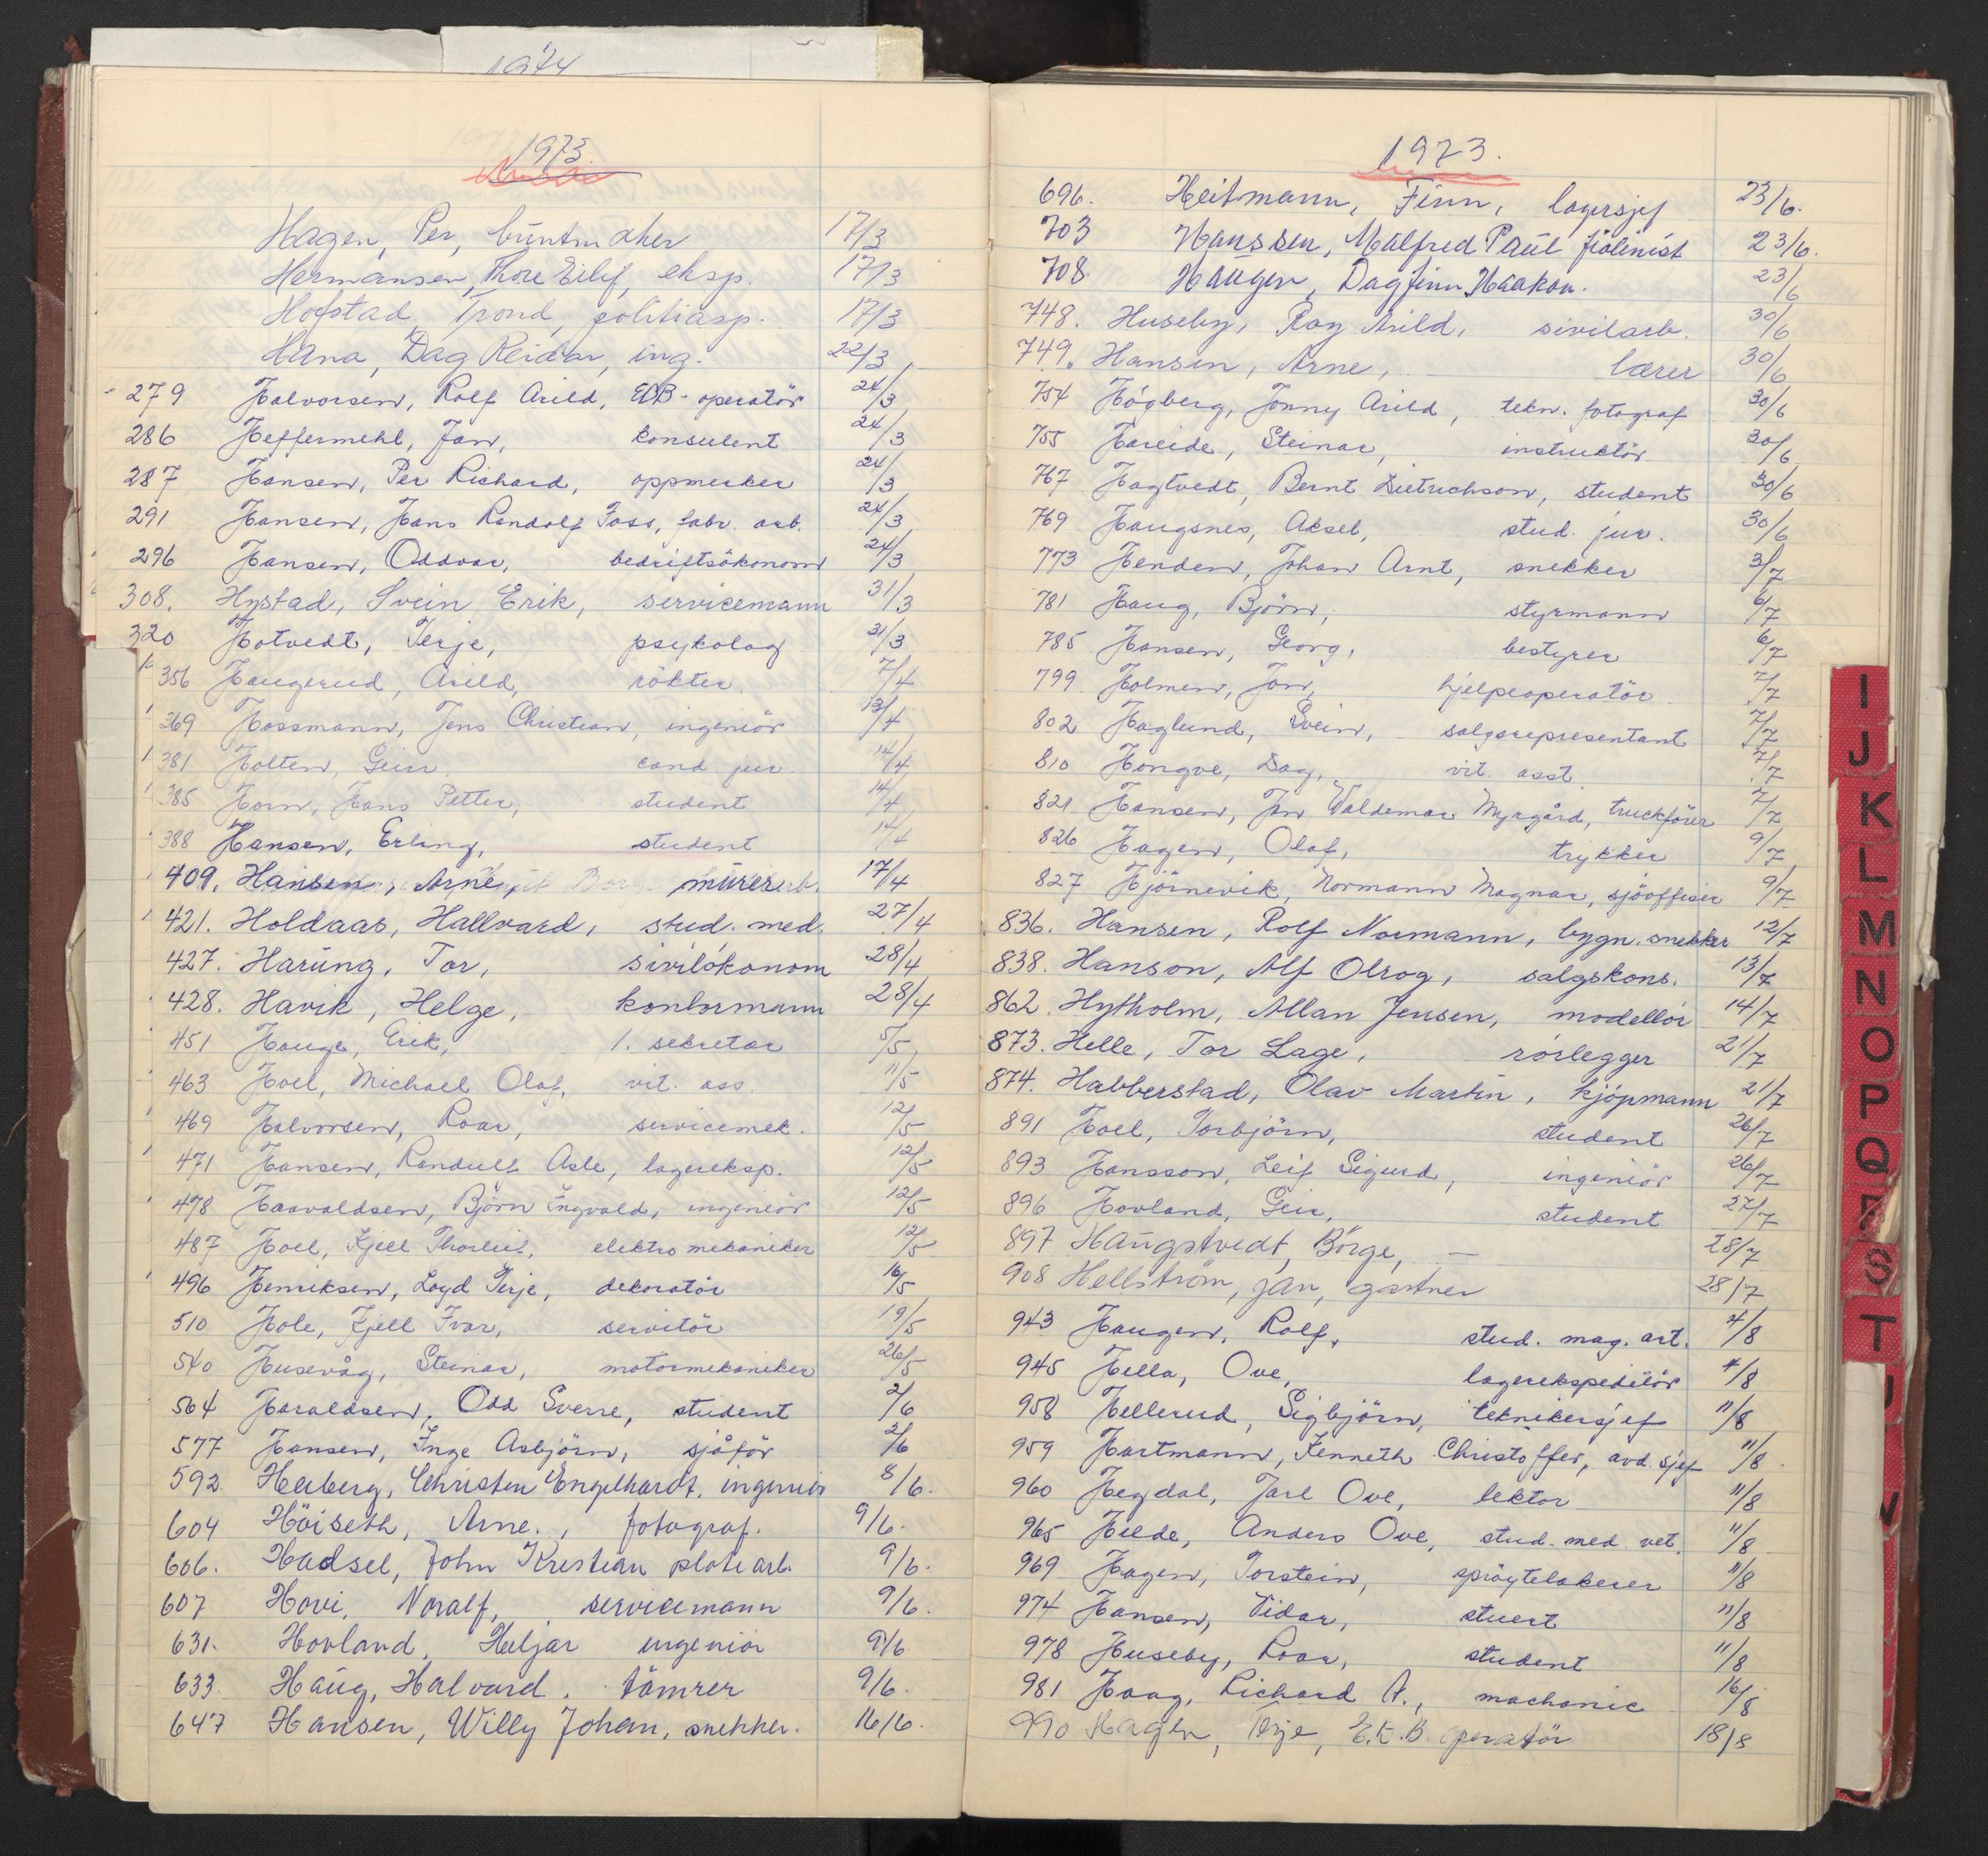 1974
1973.
Hagen, Per, buntmaker 17/3
Hermansen, Thore Eilif, eksp. 17/3
Hofstad, Trond, politiasp. 17/3
Hana, Dag Reidar, ing. 22/3
279 Halvorsen, Rolf Arild, EDB-operatör 24/3
286 Heffermehl, Jan, konsulent 24/3
287 Hansen, Per Richard, oppmerker 24/3
291 Hansen, Hans Randolf Foss, fabr. arb. 24/3
296 Hansen, Oddvar, bedriftsökonom 24/3
308. Hystad, Svein Erik, servicemann 31/3
320 Hotvedt, Terje, psykolog 31/3
356 Haugerud, Arild, rökter 7/4
369 Hassmann, Jens Christian, ingeniör 13/4
381 Holten, Geir, cand. jur. 14/4
385 Horn, Hans Petter, student 14/4
388 Hansen, Erling, student 14/4
409. Hansen, Arne, murer 17/4
421. Holdaas, Hallvard, stud. med. 27/4
427. Harung, Tor, siviløkonom 28/4
428. Havik, Helge, kontormann 28/4
451 Hauge, Erik, 1. sekretær 5/5
463 Hoel, Michael Olaf, vit. ass. 11/5
469 Halvorsen, Roar, servicemek. 12/5
471 Hansen, Randulf Asle, lagereksp. 12/5
478 Haavaldsen, Björn Ingvald, ingeniör 12/5
487 Hoel, Kjell Thorleif, elektromekaniker 12/5
496 Henriksen, Loyd Terje, dekoratör 16/5
510 Hole, Kjell Ivar, servitör 19/5
540 Husevåg, Steinar, motormekaniker 26/5
564 Haraldsen, Odd Sverre, student 2/6
577 Hansen, Inge Asbjörn, sjåför 2/6
592 Heiberg, Christen Engelhardt, ingeniör 8/6.
604 Höiseth, Arne., fotograf. 9/6.
606. Hadsel, John Kristian platearb. 9/6.
607 Hovi, Noralf, servicemann 9/6.
631. Hovland, Heljar ingeniör 9/6
633. Haug, Halvard. tömrer 9/6.
647 Hansen, Willy Johan, snekker. 16/6.
1973.
696. Heitmann, Finn, lagersjef 23/6.
703 Hanssen, Malfred Paul fiolinist 23/6.
708 Haugen, Dagfinn Haakon. 23/6
748. Huseby, Roy Arild, sivilarb. 30/6
749. Hansen, Arne, lærer 30/6
754 Högberg, Jonny Arild, tekn. fotograf 30/6
755 Hareide, Steinar, instruktör 30/6
767 Hagtvedt, Bernt Dietrichson, student 30/6
769 Haugsnes, Aksel, stud. jur. 30/6
773 Henden, Johan Arnt, snekker 3/7
781 Haug, Björn, styrmann 6/7
785 Hansen, Georg, bestyrer 6/7
799 Holmen, Jon, hjelpeoperatör 7/7
802 Haglund, Svein, salgsrepresentant 7/7
810 Hongve, Dag, vit. asst. 7/7
821 Hansen, Jan Valdemar Myrgård, truckförer 7/7
826 Hagen, Olaf, trykker 9/7
827 Hjörnevik, Normann Magnar, sjöoffiser 9/7
836. Hansen, Rolf Normann, bygn. snekker 12/7
838. Hanson, Alf Olrog, salgskons. 13/7
862. Hytholm, Allan Jensen, modellör 14/7
873. Helle, Tor Lage, rörlegger 21/7
874. Habberstad, Olav Martin, kjöpmann 21/7
891 Hoel, Torbjörn, student 26/7
893 Hansson, Leif Sigurd, ingeniör 26/7
896 Hovland, Geir, student 27/7
897 Haugstvedt, Börge, — 28/7
908 Hellström, Jan, gartner 28/7
943 Haugen, Rolf, stud. mag. art. 4/8
945 Hella, Ove, lagerekspeditör 4/8
958 Hellerud, Sigbjörn, teknikersjef 11/8
959 Hartmann, Kenneth Christoffer, avd. sjef 11/8
960 Hegdal, Jarl Ove, lektor 11/8
965 Hilde, Anders Ove, stud. med. vet. 11/8
969 Hagen, Torstein, spröytelakerer 11/8
974 Hansen, Vidar, stuert 11/8
978 Huseby, Roar, student 11/8
981 Haag, Richard A., machanic 16/8
990 Hagen, Terje, E.D.B. operatör 18/8
I
J
K
L
M
N
O
P
Q
S
T